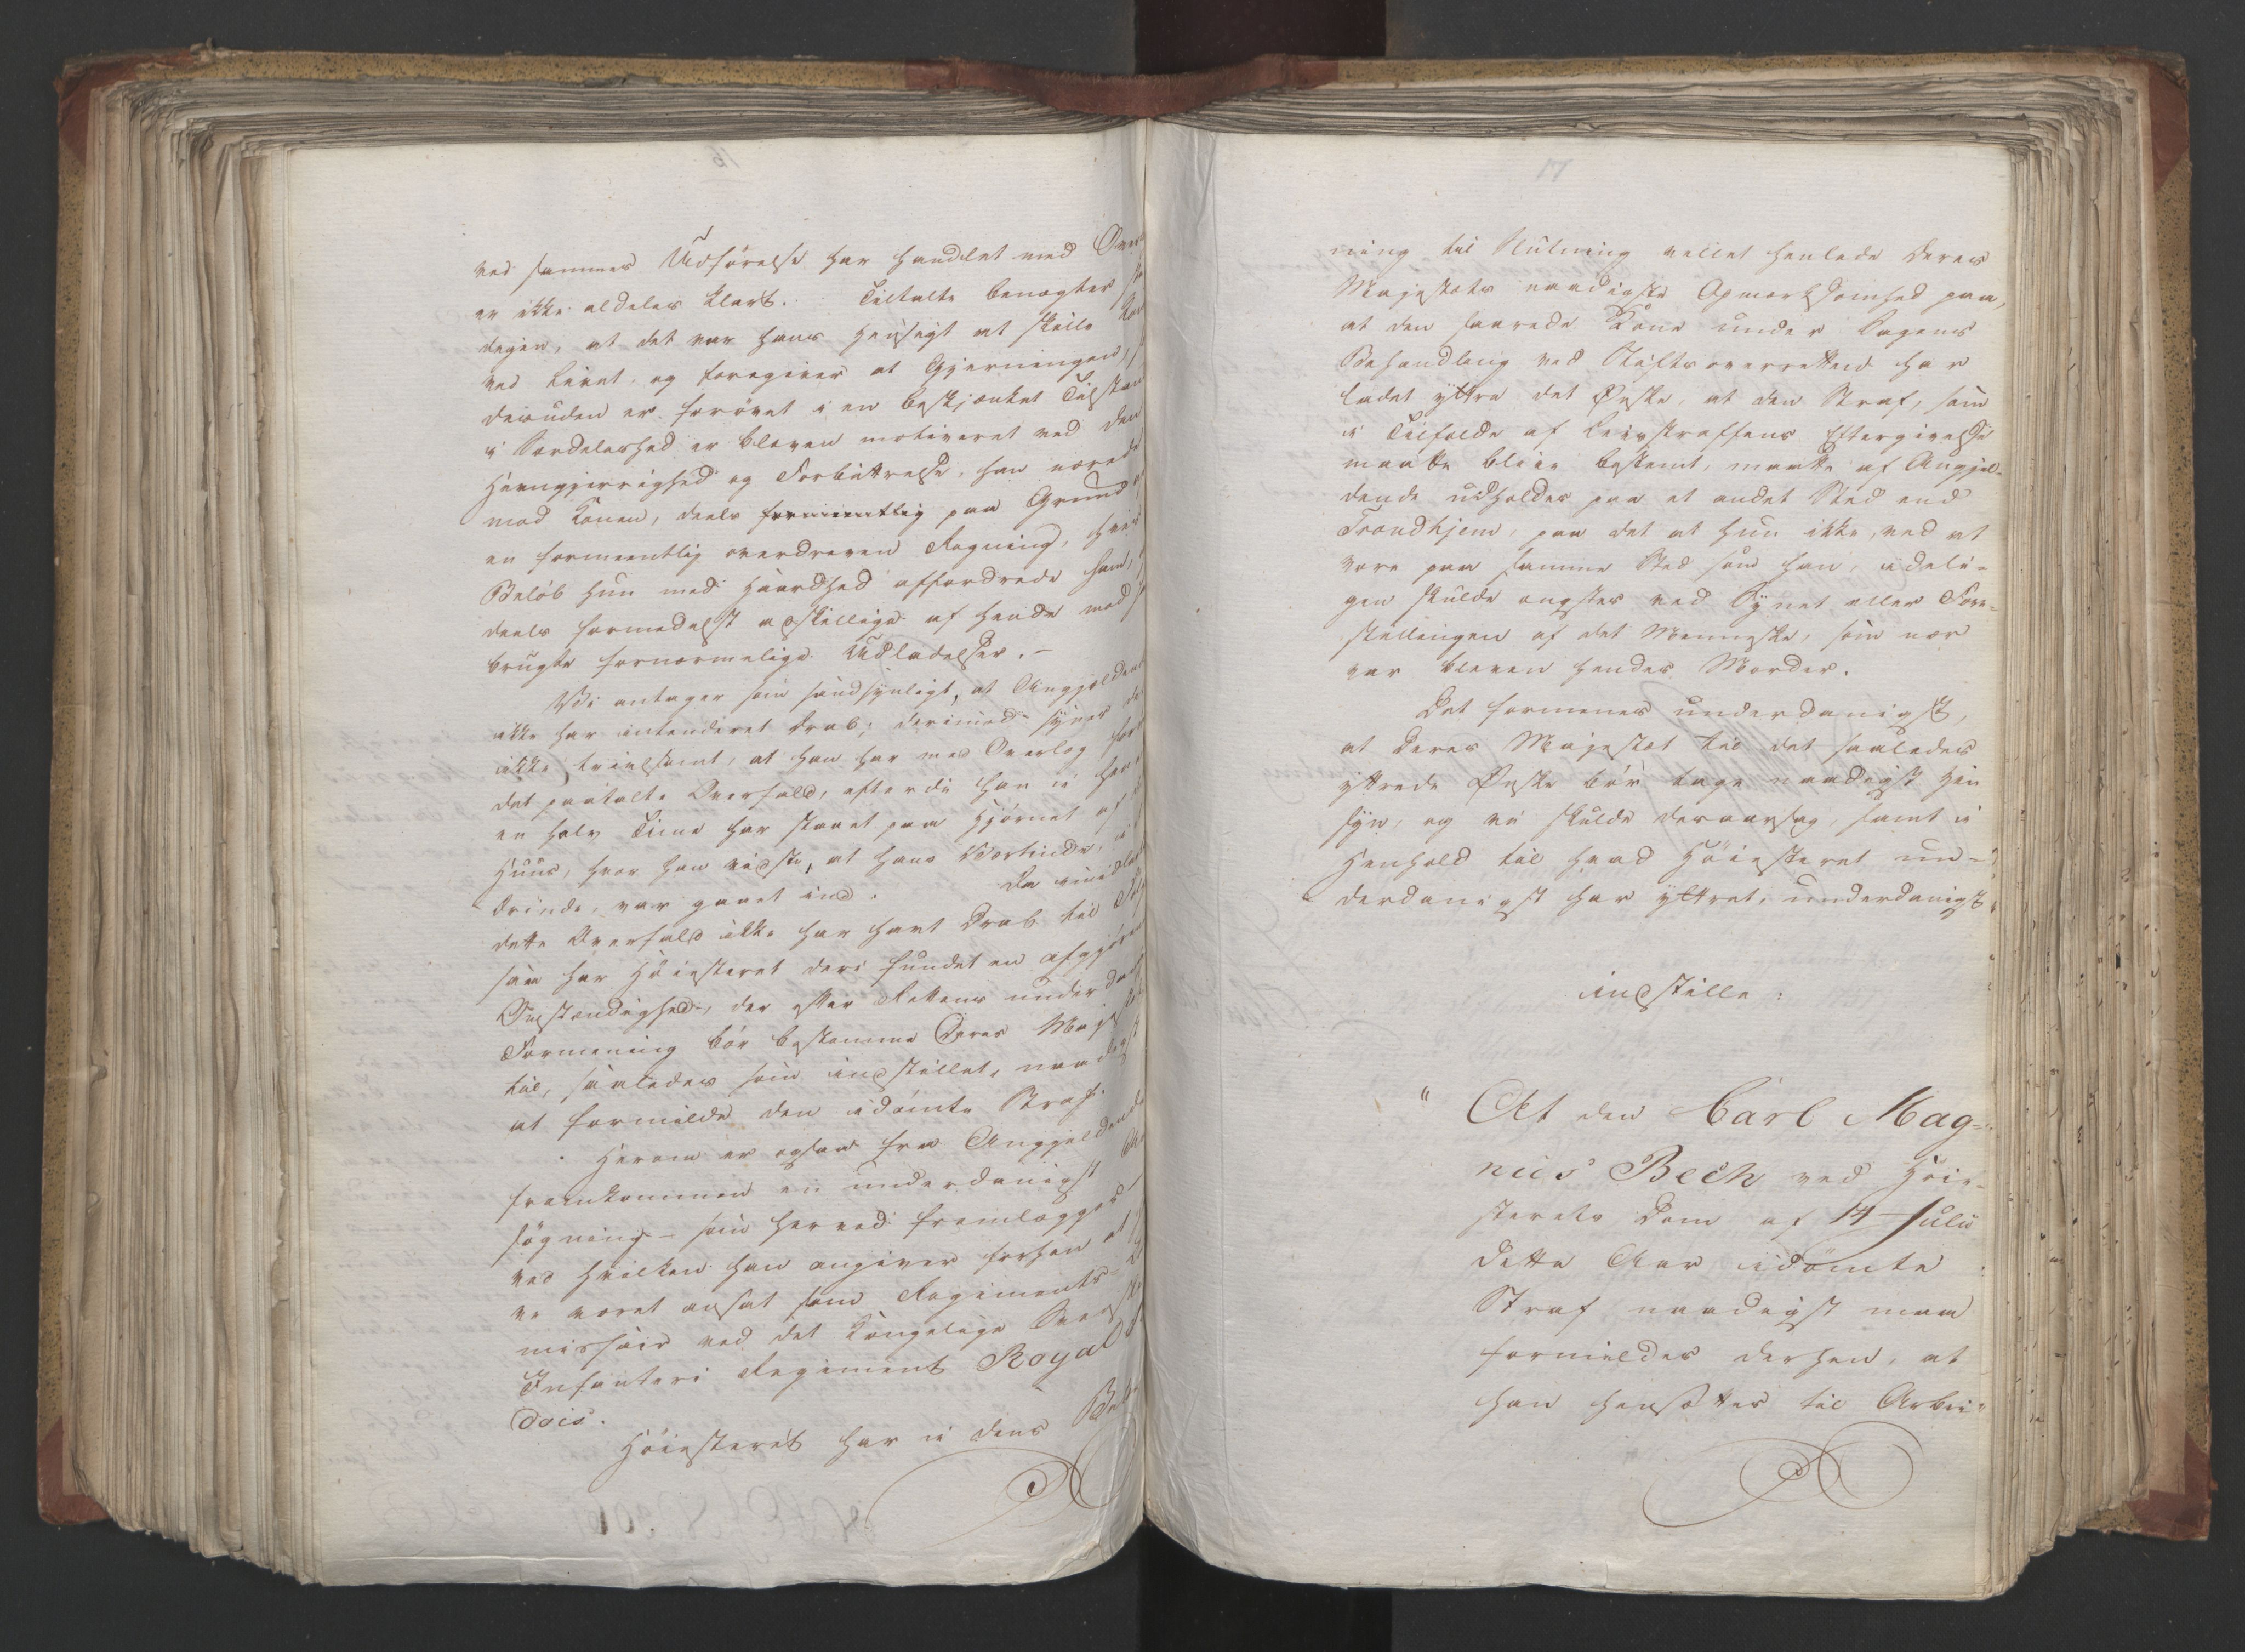 16
ved sammes Udførelse har handlet med Over
er ikke aldeles klart. Tiltalte benægter
degen, at det var hans Hensigt at skille
ved Livet, og foregiver at Gjerningen,
desuden er forøvet i en beskjænket Tilstan
i Særdeleshed er bleven motiveret ved den
Hævngjerrighed og Forbittrelse, han nærede
mod Konen, deels formeentlig paa Grund
en formeentlig overdreven Regning, hvis
Beløb hun med Haardhed affordrede ham,
deels formedelst adskillige af hende mod
brugte fornærmelige Udladelser. –
Vi antager som sandsynligt, at Angjældend
ikke har intenderet Drab; derimod synes det
ikke tvivlsomt, at han har med Overlæg
det paatalte Overfald, efterdi han i hen
en halv Time har staaet paa Hjørnet af
Huus, hvor han vidste, at hans Værtinde,
drinde, var gaaet ind. Da imidlert
dette Overfald ikke har havt Drab til
saa har Høiesteret deri fundet en afgjøren
Omstændighed, der efter Rettens underda
Formening bør bestemme Deres Majestæ
til, saaledes som indstillet, naadigst
at formilde den idømte Straf.
Herom er ogsaa fra Angjældende
fremkommen en underdanigst
søgning – som herved fremlægges
ved hvilken han angiver forhen at
ve været ansat som Regiments
missair ved det Kongelige Svenske
Infanteri Regiment Royal
dois.
Høiesteret har i dens
17
ning til Slutning villet henlede Deres
Majestæts naadigste Opmærksomhed paa,
at den saarede Kone under Sagens
Behandling ved Stiftsoverretten har
ladet yttre det Ønske, at den Straf, som
i Tilfælde af Livsstraffens Eftergivelse
maatte blive bestemt, maatte af Angjæl-
dende udholdes paa et andet Sted end
Trondhjem, paa det at hun ikke, ved at
være paa samme Sted som han, ideli-
gen skulde ængstes ved Synet eller Fore-
stillingen af det Menneske, som nær
var bleven hendes Morder.
Det formenes underdanigst,
at Deres Majestæt til det saaledes
yttrede Ønske bør tage naadigst Hen
syn, og vi skulde desaarsag, samt i
Henhold til hvad Høiesteret un-
derdanigst har yttret, underdanigst
indstille:
" At den Carl Mag-
nus Bech ved Høie-
sterets Dom af 14 Julii
dette Aar idømte
Straf naadigst maa
formildes derhen, at
han hensættes til Arbei-